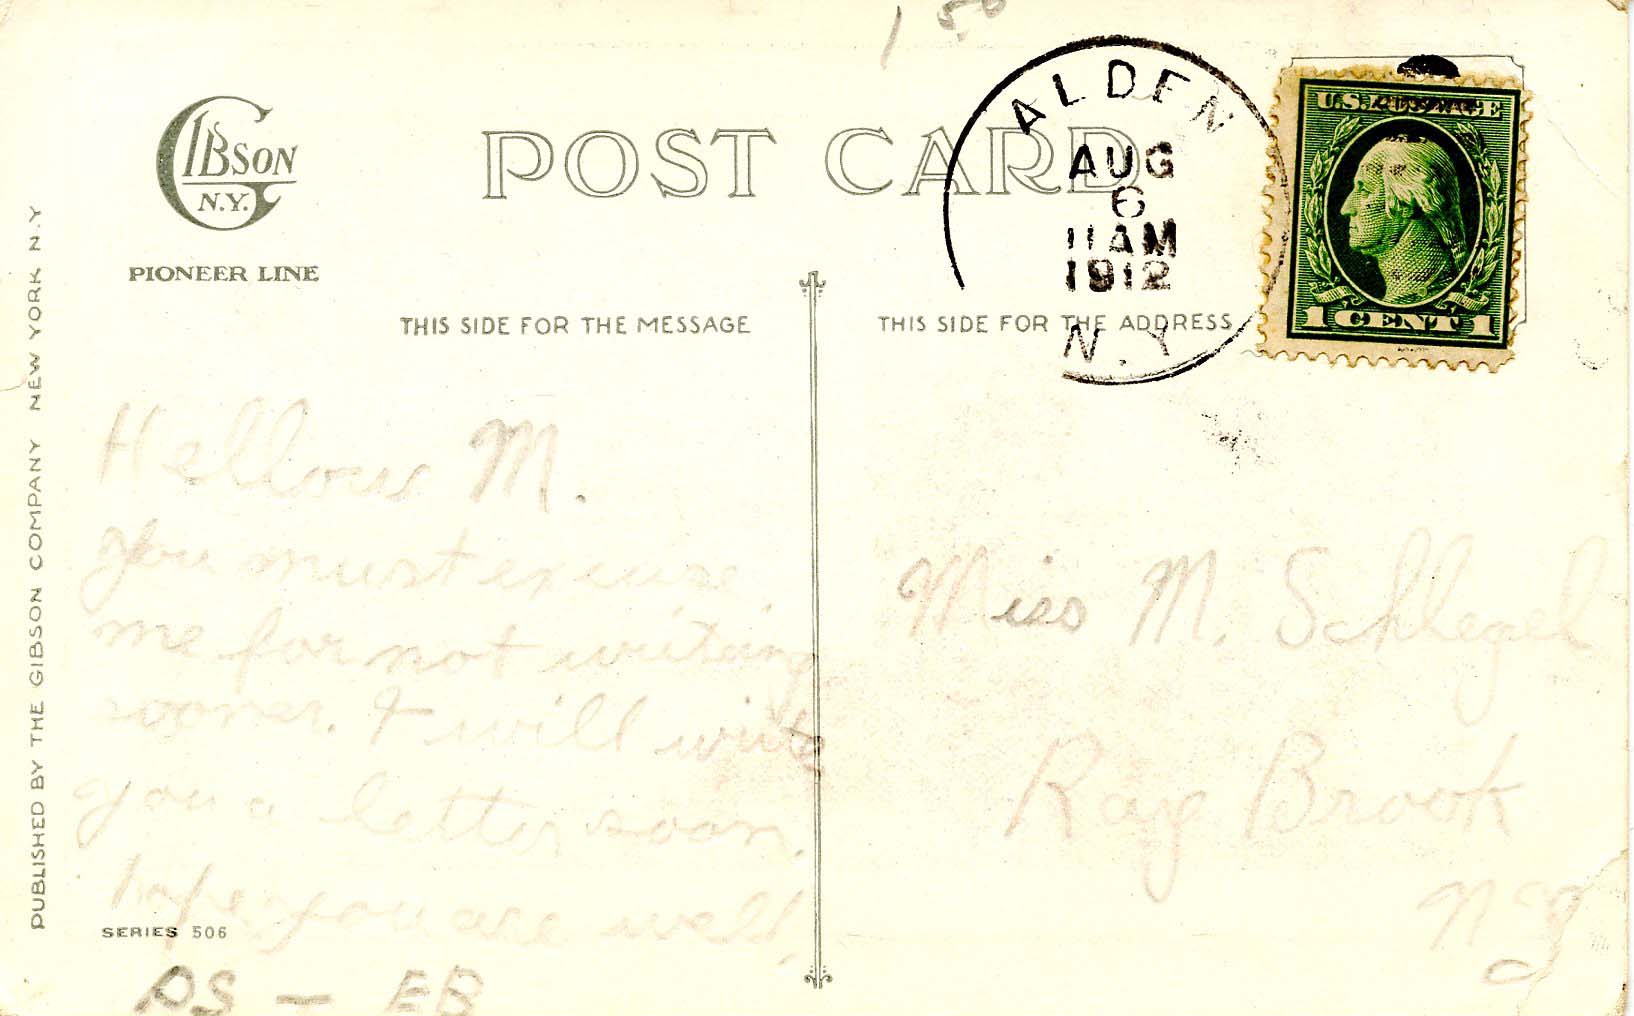 1 50
GIBSON
N.Y.
PIONEER LINE
POST CARD
ALDEN
AUG
6
11 AM
1912
N.Y
U.S. POSTAGE
1 CENT 1
THIS SIDE FOR THE MESSAGE
THIS SIDE FOR THE ADDRESS
PUBLISHED BY THE GIBSON COMPANY NEW YORK N.Y
Hellow M.
you must excuse
me for not writing
sooner. I will write
you a letter soon.
hope you are well,
SERIES 506
PS — EB
Miss M. Schlegel
Ray Brook
N.Y